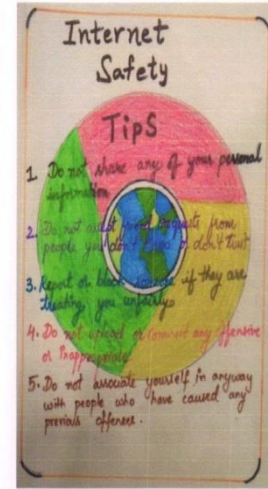 Internet
Safety
Tips
1. Do not share any of your personal
information
2. Do not accept friend requests from
people you don't know or don't trust
3. Report or block someone if they are
treating you unfairly
4. Do not upload or comment any offensive
or Inappropriate
5. Do not associate yourself in anyway
with people who have caused any
previous offenses.